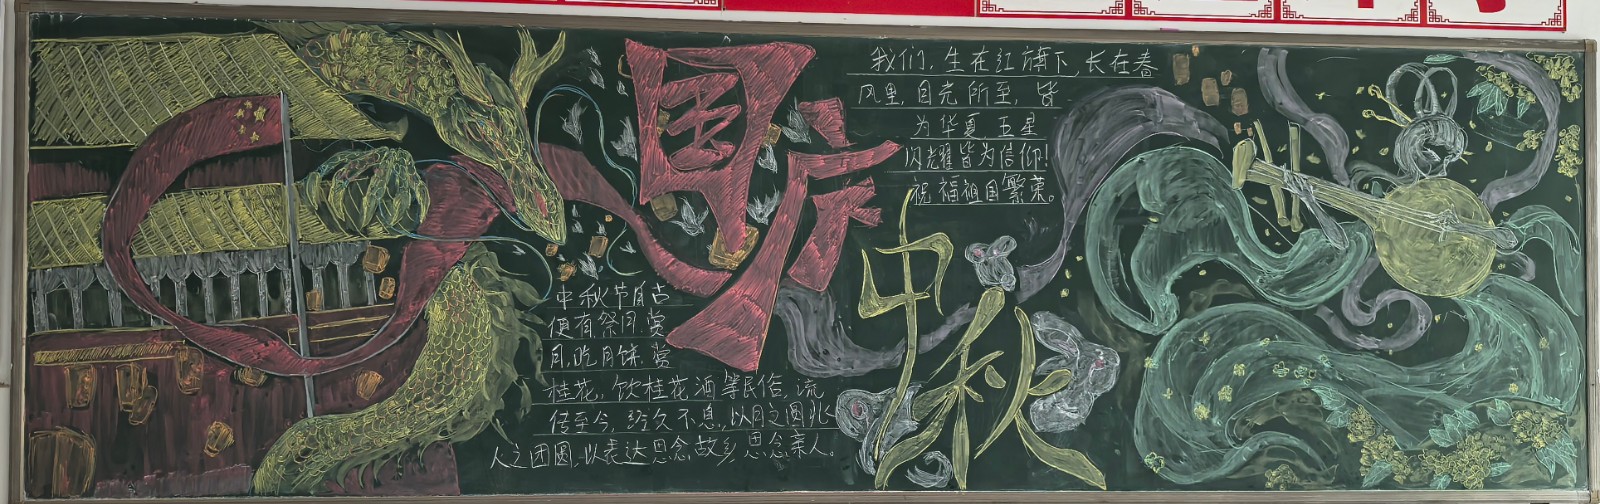 国庆
中秋
我们，生在红旗下，长在春
风里，目光所至，皆
为华夏，五星
闪耀皆为信仰！
祝福祖国繁荣。
中秋节自古
便有祭月，赏
月，吃月饼，赏
桂花，饮桂花酒等民俗，流
传至今，经久不息，以月之圆兆
人之团圆，以表达思念故乡，思念亲人。